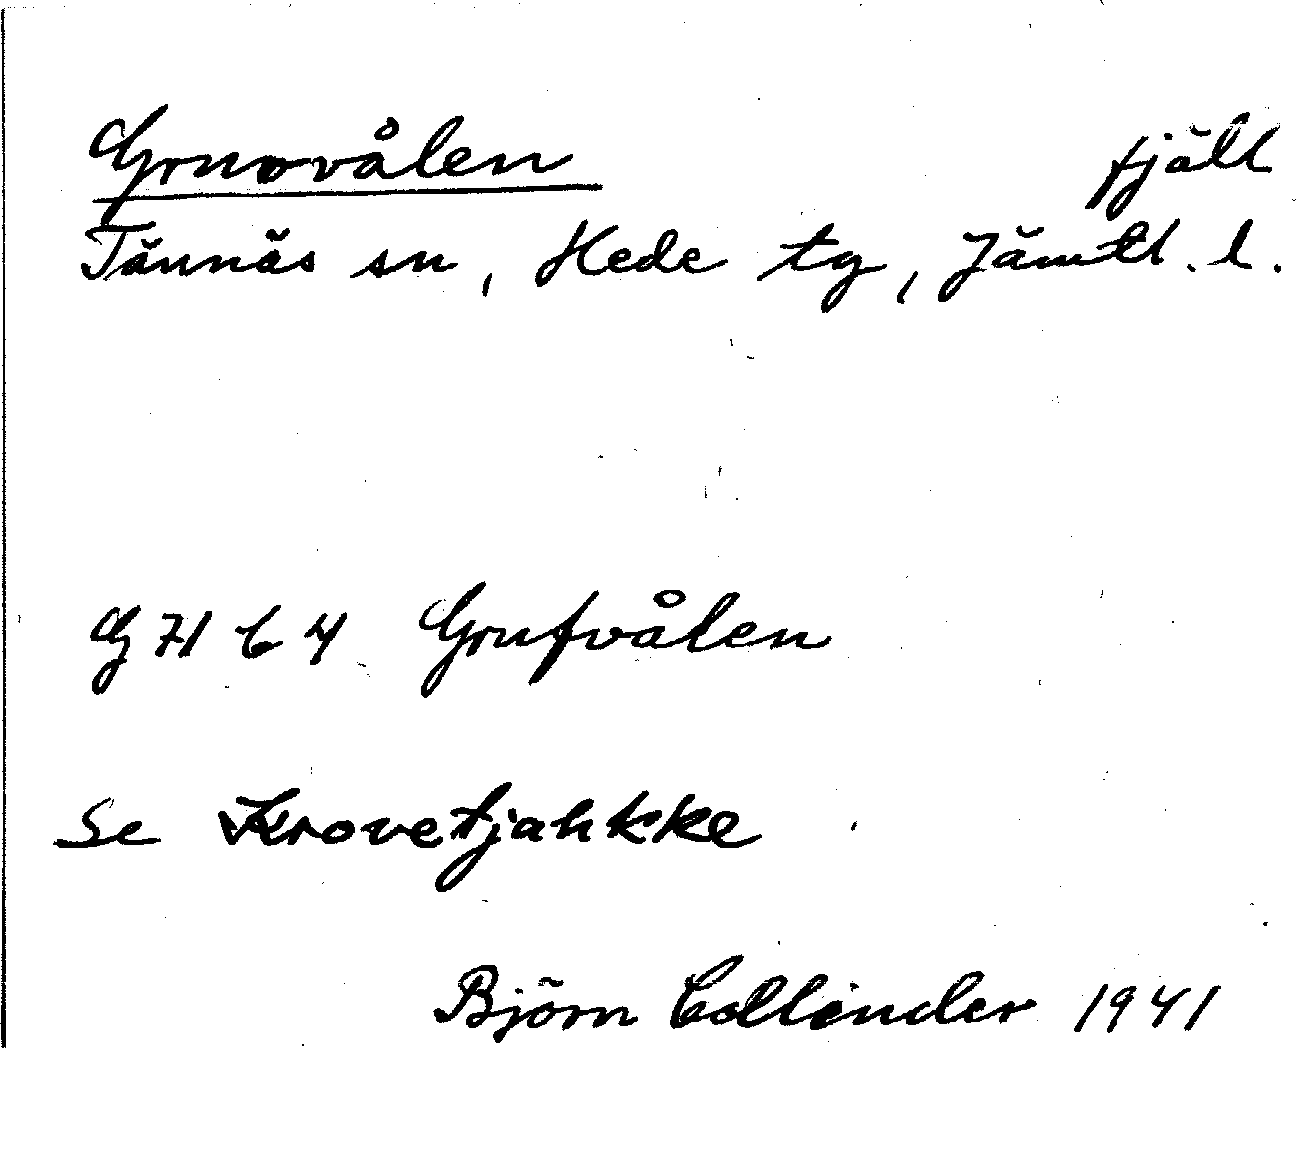 Gruvvålen fjäll
Tännäs sn, Hede tg, Jämtl. l.
G 71 b 4 Grufvålen
Se Krovetjahkke
Björn Collinder 1941